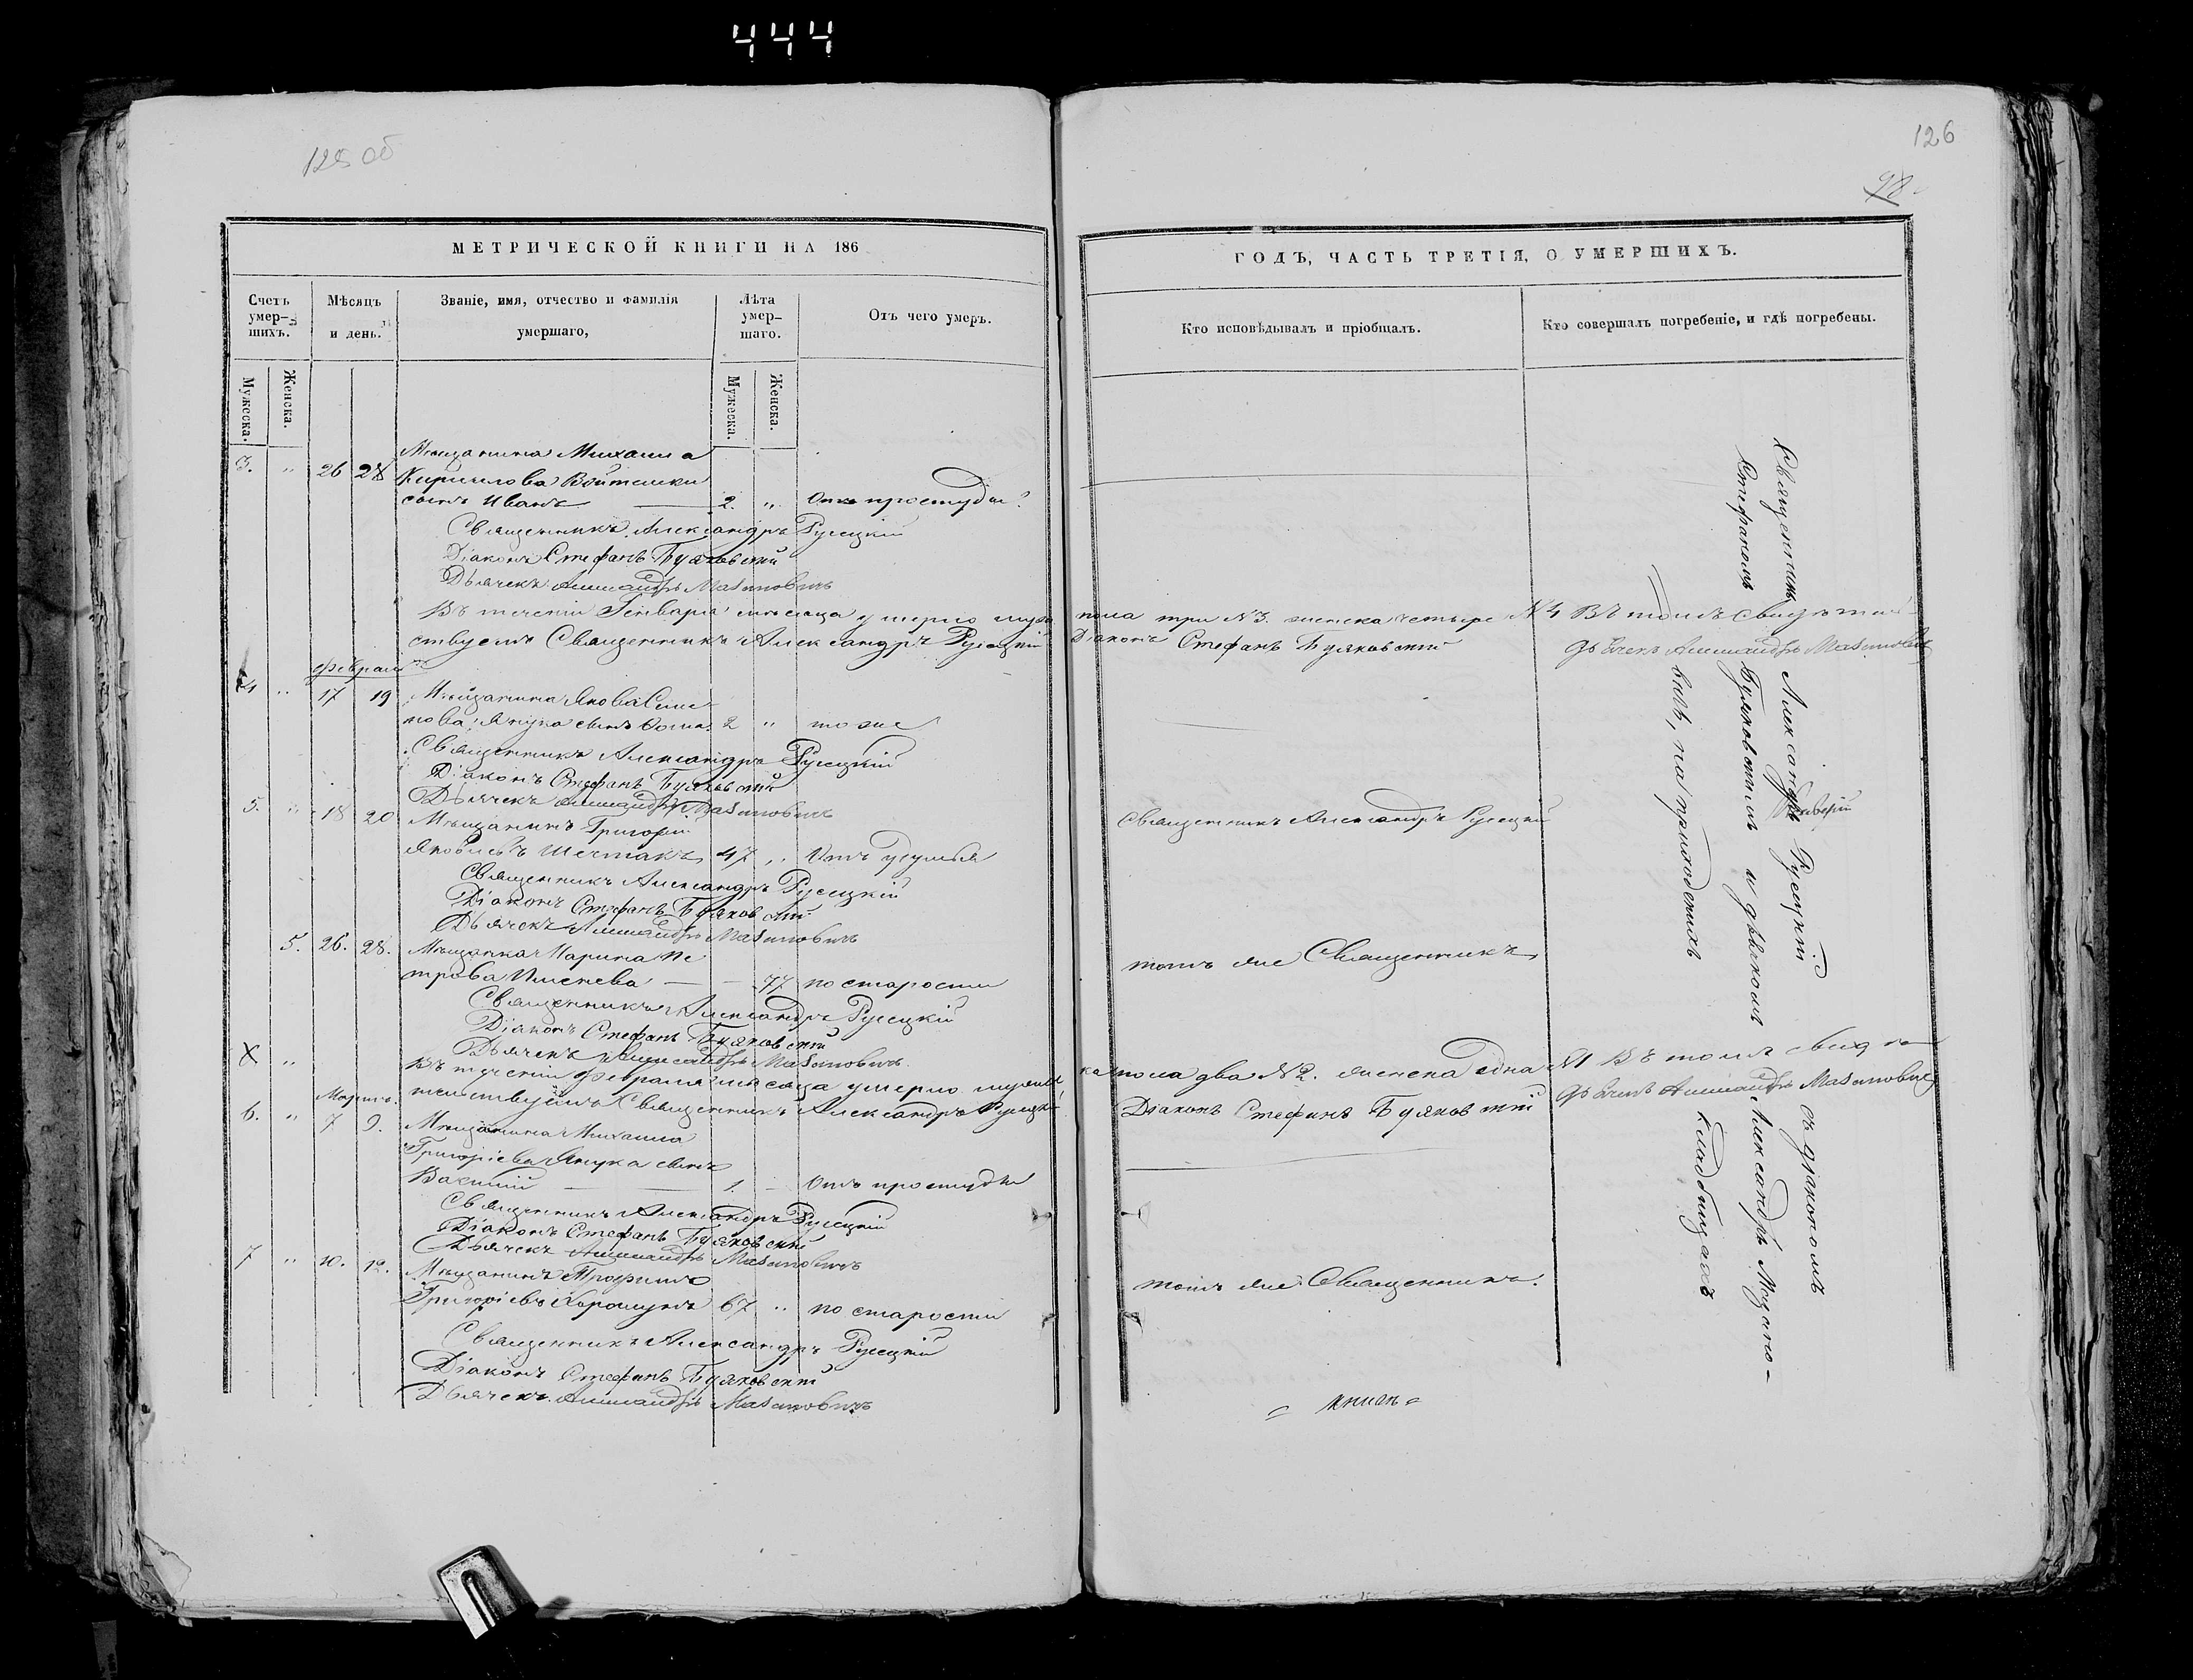 444
125 об
МЕТРИЧЕСКОЙ КНИГИ НА 186
Счетъ умер-шихъ.
Мѣсяцъ и день.
Званіе, имя, отчество и фамилія умершаго,
Лѣта умер-шаго.
Отъ чего умеръ.
Мужеска.
Женска.
Мужеска.
Женска.
Мѣщанина Михаила
3. " 26 28 Кирилова Войтешки
сынъ Иванъ 2. " Отъ простуды
Священникъ Александръ Русецкій
Діаконъ Стефанъ Буяковскій
Дьячекъ Александръ Мазановичъ
Въ теченіи Генваря мѣсяца умерло муж
ствуемъ Священникъ Александръ Русецкій
Февраль
4 " 17 19 Мѣщанина Якова Семе
нова Янука сынъ 2 " тоже
Священникъ Александръ Русецкій
Діаконъ Стефанъ Буяковскій
Дьячекъ Александръ Мазановичъ
5. " 18 20 Мѣщанинъ Григорій
Яковлевъ Шестакъ 47 " Отъ удушья
Священникъ Александръ Русецкій
Діаконъ Стефанъ Буяковскій
Дьячекъ Александръ Мазановичъ
5. 26. 28. Мѣщанка Марина Пе
трова 77 по старости
Священникъ Александръ Русецкій
Діаконъ Стефанъ Буяковскій
Дьячекъ Александръ Мазановичъ
Въ теченіи Февраля мѣсяца умерло мужес
тельствуемъ Священникъ Александръ Русецкій
Мартъ.
6. " 7 9. Мѣщанина Михаила
Григоріева Янука сынъ
Василій 1. Отъ простуды
Священникъ Александръ Русецкій
Діаконъ Стефанъ Буяковскій
Дьячекъ Александръ Мазановичъ
7 " 10. 12. Мѣщанинъ Трофимъ
Григоріевъ Хорошунъ 67 " по старости
Священникъ Александръ Русецкій
Діаконъ Стефанъ Буяковскій
Дьячекъ Александръ Мазановичъ
126
98
ГОДЪ, ЧАСТЬ ТРЕТІЯ, О УМЕРШИХЪ.
Кто исповѣдывалъ и пріобщалъ.
Кто совершалъ погребеніе, и гдѣ погребены.
пола три №3. женска четыре №4 Въ томъ свидѣтель
Діаконъ Стефанъ Буяковскій дьячекъ Александръ Мазановичъ
Священникъ Александръ Русецкій
тотъ же Священникъ
ка пола два №2. женска одна №1 Въ томъ свидѣ
Діаконъ Стефанъ Буяковскій дьячекъ Александръ Мазановичъ
тотъ же Священникъ.
Священникъ Александръ Русецкій съ діакономъ
Стефаномъ Буяковскимъ и дьячкомъ Александръ Мазано-
вичъ, на приходскихъ кладбищахъ